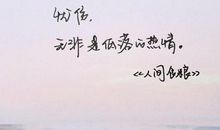 忧伤，
无非是低落的热情。
《人间色狼》